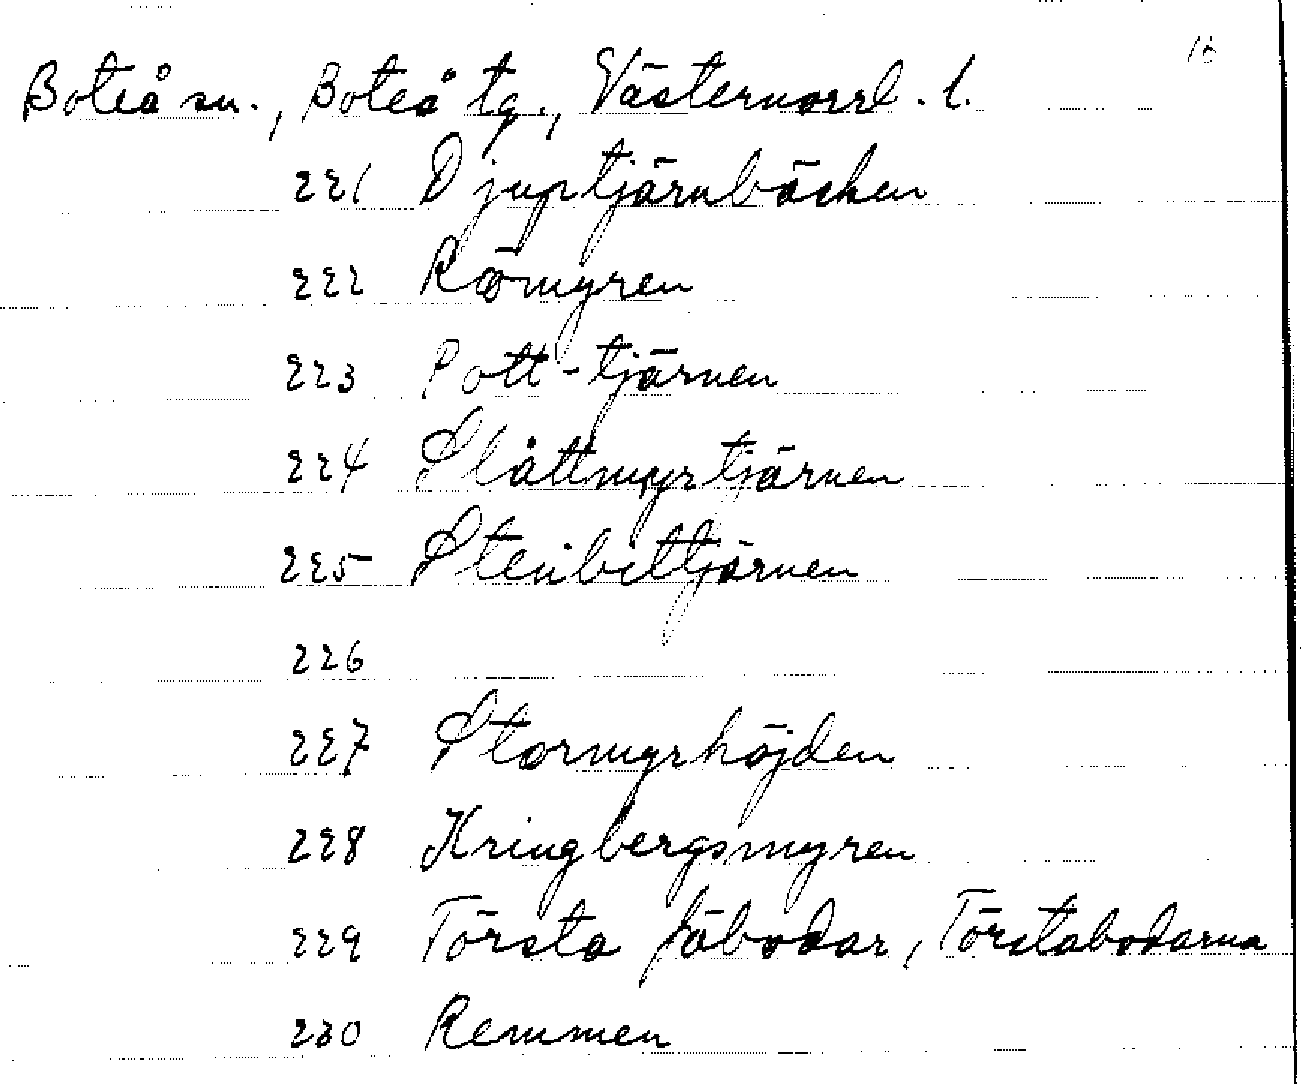 16
Boteå sn., Boteå tg., Västernorrl. l.
221 Djuptjärnbäcken
222 Römyren
223 Pott-tjärnen
224 Slåttmyrtjärnen
225 Stenbittjärnen
226
227 Stormyrhöjden
228 Kringbergsmyren
229 Törsta fäbodar, Törstabodarna
230 Remmen